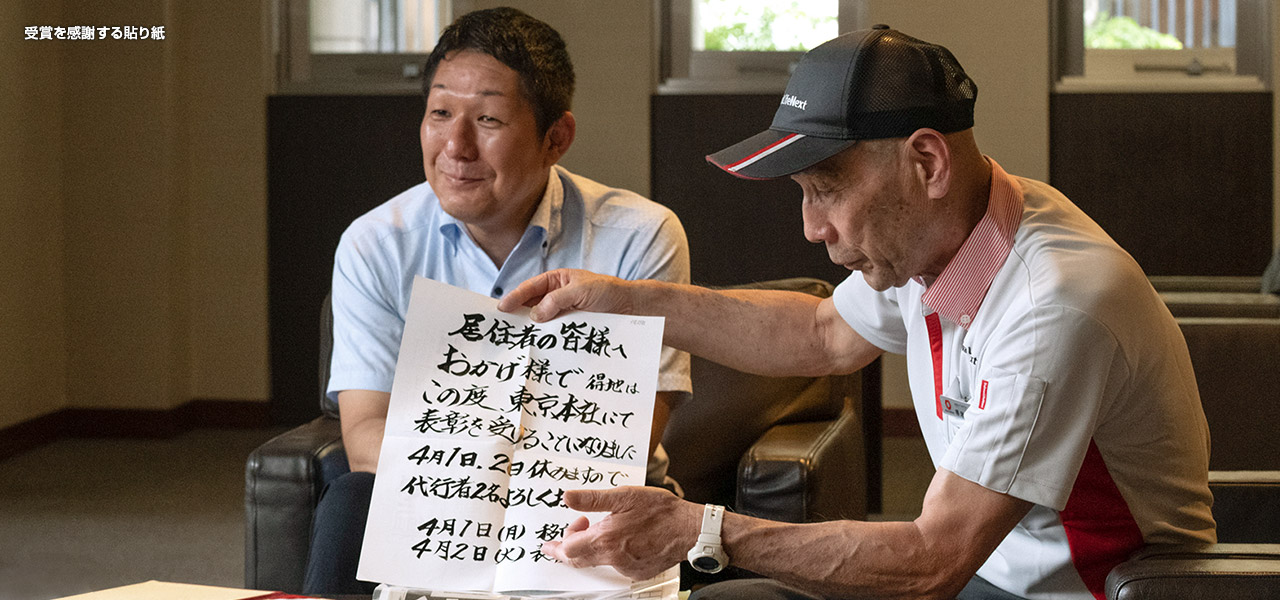 受賞を感謝する貼り紙
居住者の皆様へ
おかげ様で 得地は
この度、東京本社にて
表彰を受けることになりました
4月1日、2日休みますので
代行者2名よろしくお
4月1日(月) 移
4月2日(火) 表